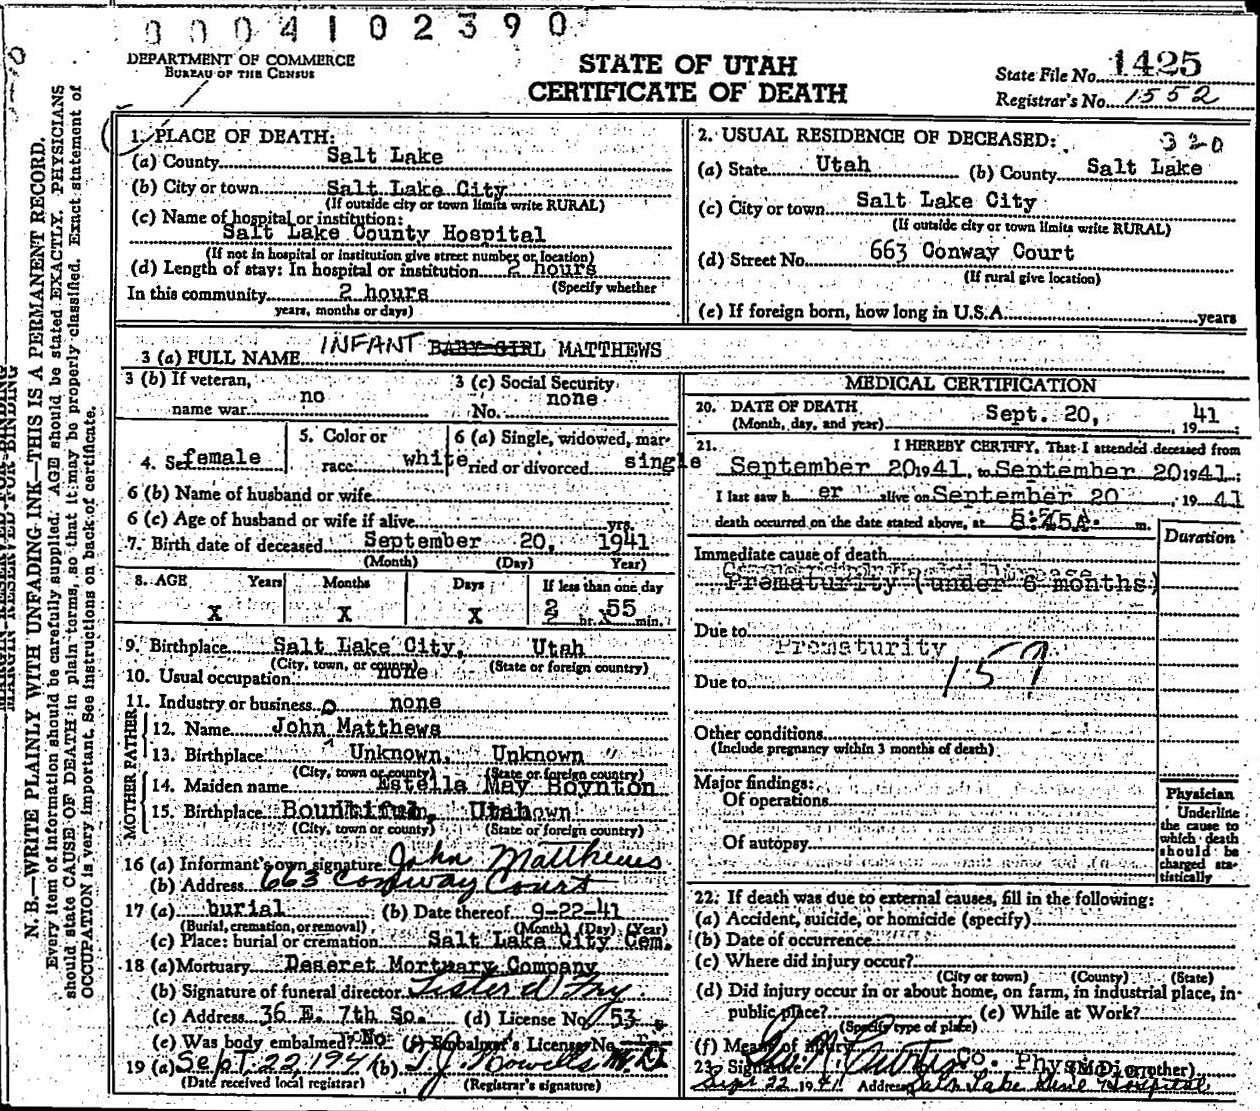 0004102390
DEPARTMENT OF COMMERCE
BUREAU OF THE CENSUS
STATE OF UTAH
CERTIFICATE OF DEATH
State File No. 1425
Registrar's No. 1552
N. B.—WRITE PLAINLY WITH UNFADING INK—THIS IS A PERMANENT RECORD.
Every item of information should be carefully supplied. AGE should be stated EXACTLY. PHYSICIANS
should state CAUSE OF DEATH in plain terms, so that it may be properly classified. Exact statement of
OCCUPATION is very important. See instructions on back of certificate.
MARGIN RESERVED FOR BINDING
1. PLACE OF DEATH:
(a) County Salt Lake
(b) City or town Salt Lake City
(If outside city or town limits write RURAL)
(c) Name of hospital or institution:
Salt Lake County Hospital
(If not in hospital or institution give street number or location)
(d) Length of stay: In hospital or institution 2 hours
(Specify whether
In this community 2 hours
years, months or days)
2. USUAL RESIDENCE OF DECEASED: 320
(a) State Utah (b) County Salt Lake
(c) City or town Salt Lake City
(If outside city or town limits write RURAL)
(d) Street No. 663 Conway Court
(If rural give location)
(e) If foreign born, how long in U.S.A. years
3 (a) FULL NAME INFANT BABY GIRL MATTHEWS
3 (b) If veteran,
name war. no
3 (c) Social Security
No. none
4. Sex female
5. Color or
race white
6 (a) Single, widowed, mar-
ried or divorced single
6 (b) Name of husband or wife
6 (c) Age of husband or wife if alive yrs.
7. Birth date of deceased September 20, 1941
(Month) (Day) Year)
8. AGE Years Months Days If less than one day
X X X 2 hr. 55 min.
9. Birthplace Salt Lake City, Utah
(City, town, or county) (State or foreign country)
10. Usual occupation none
11. Industry or business none
FATHER
12. Name John Matthews
13. Birthplace Unknown, Unknown "
(City, town or county) (State or foreign country)
MOTHER
14. Maiden name Estella May Boynton
15. Birthplace Bountiful, Utah
(City, town or county) (State or foreign country)
16 (a) Informant's own signature John Matthews
(b) Address 663 Conway Court
17 (a) burial (b) Date thereof 9-22-41
(Burial, cremation, or removal) (Month) (Day) (Year)
(c) Place: burial or cremation Salt Lake City Cem.
18 (a) Mortuary Deseret Mortuary Company
(b) Signature of funeral director
(c) Address 36 E. 7th So. (d) License No. 53
(e) Was body embalmed? No (f) Embalmer's License No.
19 (a) Sept. 22, 1941 (b) T J Howells M.D
(Date received local registrar) (Registrar's signature)
MEDICAL CERTIFICATION
20. DATE OF DEATH
(Month, day, and year) Sept. 20, 1941;
21. I HEREBY CERTIFY, That I attended deceased from
September 20 1941, to September 20 1941;
I last saw her alive on September 20, 1941
death occurred on the date stated above, at m.
Duration
Immediate cause of death
Prematurity (under 6 months)
Due to
Prematurity
Due to 159
Other conditions
(Include pregnancy within 3 months of death)
Major findings:
Of operations
Of autopsy
Physician
Underline
the cause to
which death
should be
charged sta-
tistically
22. If death was due to external causes, fill in the following:
(a) Accident, suicide, or homicide (specify)
(b) Date of occurrence
(c) Where did injury occur?
(City or town) (County) (State)
(d) Did injury occur in or about home, on farm, in industrial place, in
public place? (e) While at Work?
(Specify type of place)
(f) Means of injury
23. Signature Co. Physician
(M.D. or other)
Sept 22 1941 Address Salt Lake Gen. Hospital